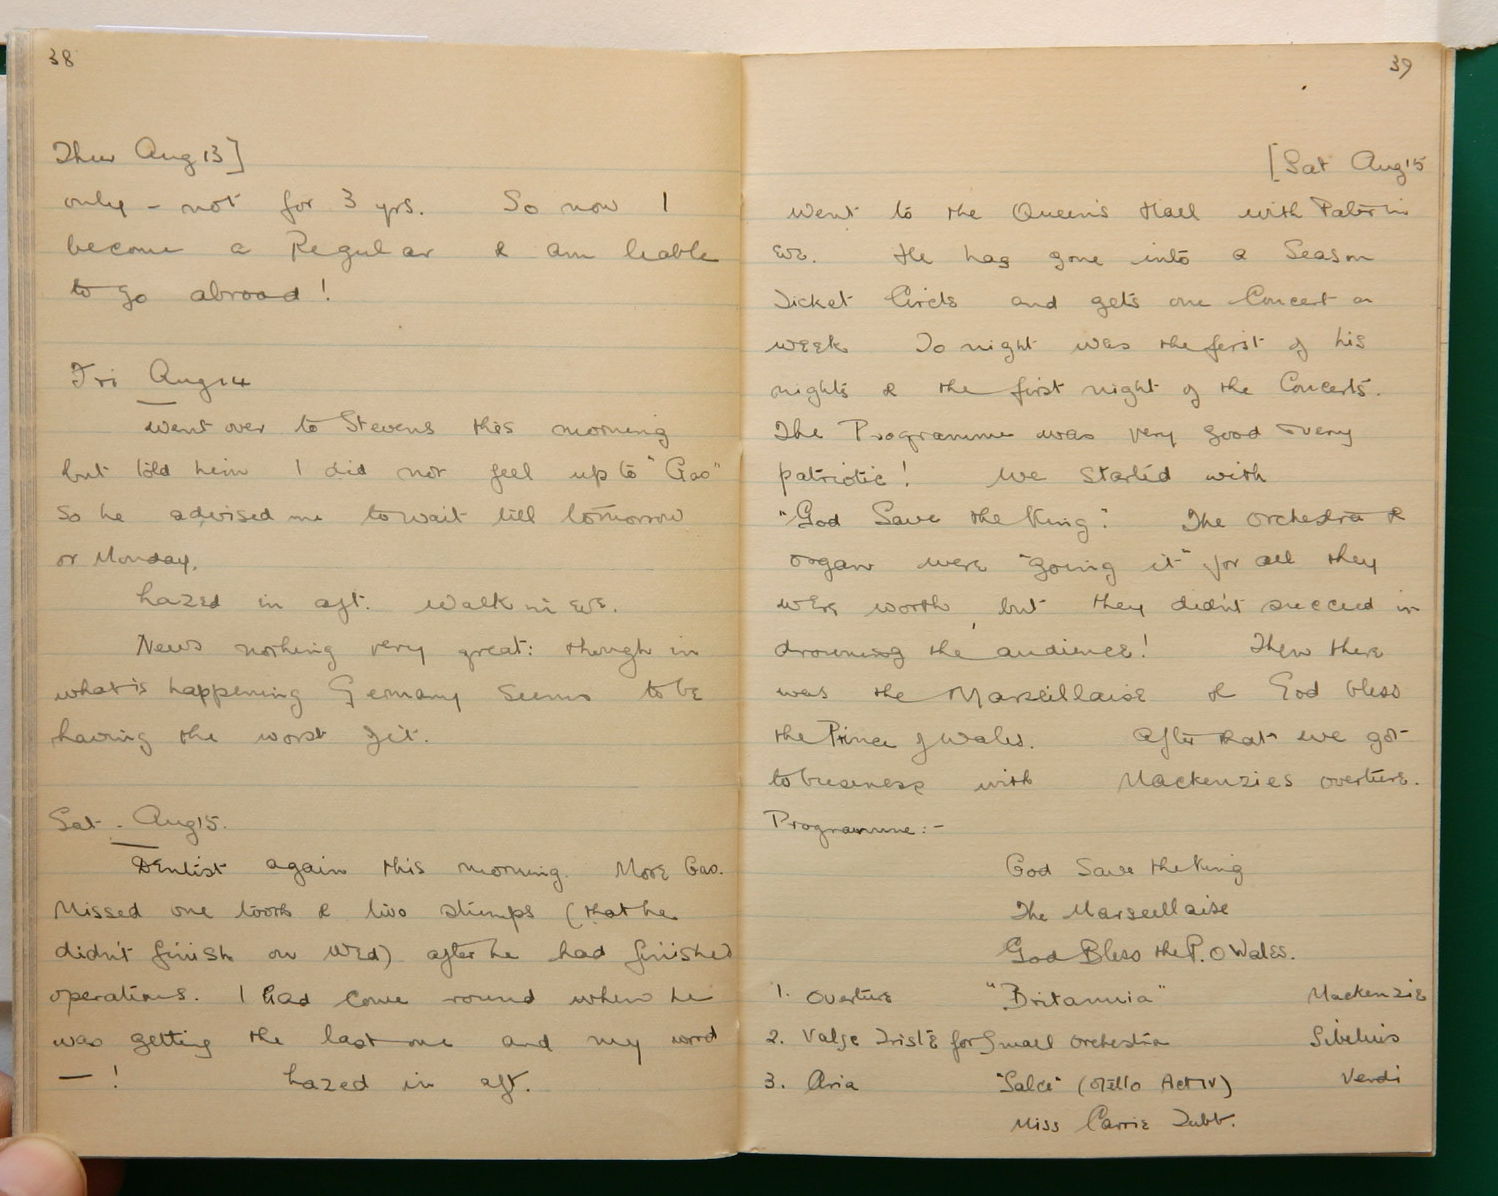 38
Thur Aug 13]
only – not for 3 yrs. So now I
become a Regular & am liable
to go abroad!
Fri Aug 14
Went over to Stevens this morning
but told him I did not feel up to "Gas"
so he advised me to wait till tomorrow
or Monday.
Lazed in aft. Walk in eve.
News nothing very great: though in
what is happening Germany seems to be
having the worst of it.
Sat. Aug 15.
Dentist again this morning. More Gas.
Missed one tooth & two stumps (that he
didn't finish on Wed) after he had finished
operations. I had come round when he
was getting the last one and my word
— ! Lazed in aft.
39
[Sat Aug 15
Went to the Queen's Hall with Pater in
eve. He has gone into a Season
Ticket Circle and gets one Concert a
week. To night was the first of his
nights & the first night of the Concerts.
The Programme was very good & very
patriotic! We started with
"God Save the King". The Orchestra &
organ were "going it" for all they
were worth, but they didn't succeed in
drowning the audience! Then there
was the Marseillaise & God bless
the Prince of Wales. After that we got
to business with Mackenzies overture.
Programme:-
God Save the King
The Marseillaise
God Bless the P. O Wales.
1. Overture "Britannia" Mackenzie
2. Valse Triste for Small Orchestra Sibelius
3. Aria "Salce" (Otello Act IV) Verdi
Miss Carrie Tubb.